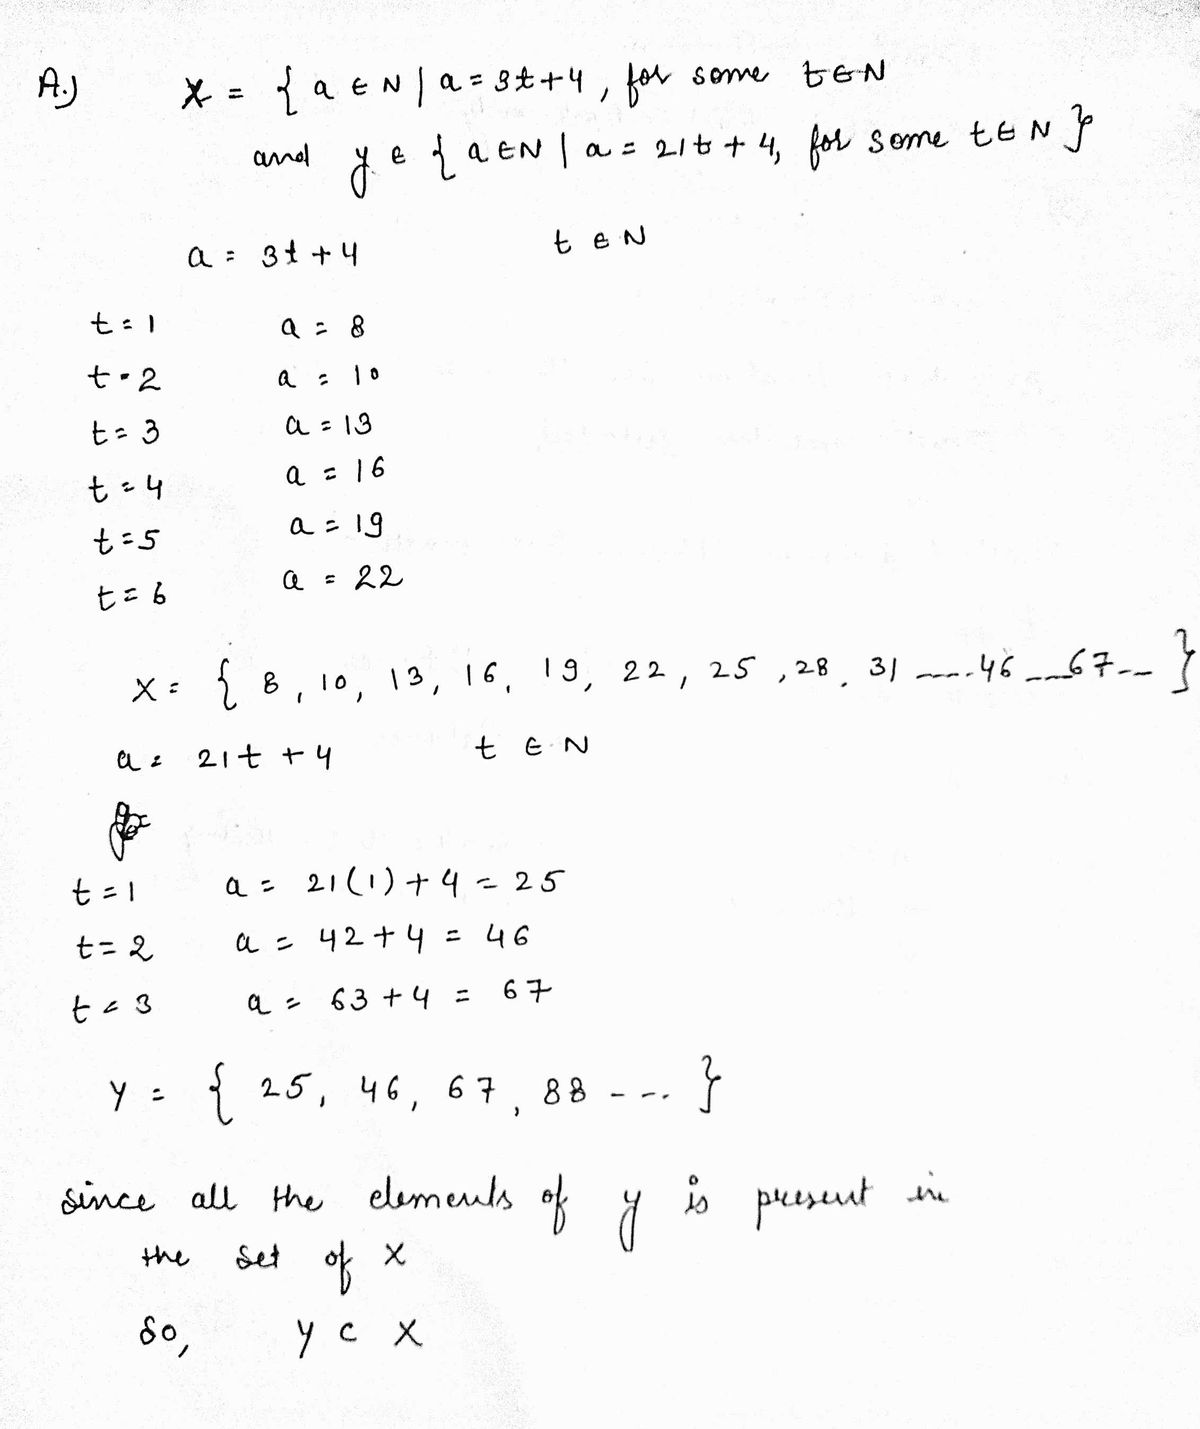 A.) X = { a ∈ N | a = 3t+4, for some t∈N
and y ∈ { a ∈N | a = 21t + 4, for some t∈N }
a = 3t + 4 t ∈ N
t = 1 a = 8
t = 2 a = 10
t = 3 a = 13
t = 4 a = 16
t = 5 a = 19
t = 6 a = 22
X = { 8, 10, 13, 16, 19, 22, 25, 28, 31 ----- 46 ---67--- }
a = 21t + 4 t ∈ N
t = 1 a = 21(1) + 4 = 25
t = 2 a = 42 + 4 = 46
t = 3 a = 63 + 4 = 67
y = { 25, 46, 67, 88 ---- }
since all the elements of y is present in
the set of X
So, y ⊂ X